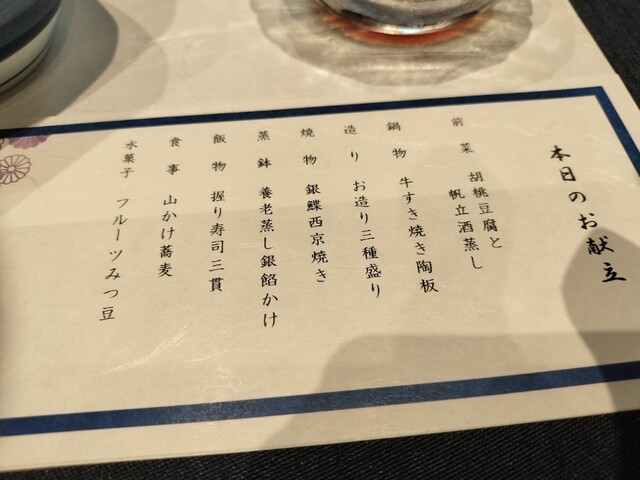 本日のお献立
前菜 胡桃豆腐と
帆立酒蒸し
鍋物 牛すき焼き陶板
造り お造り三種盛り
焼物 銀鰈西京焼き
蒸鉢 養老蒸し銀餡かけ
飯物 握り寿司三貫
食事 山かけ蕎麦
水菓子 フルーツみつ豆